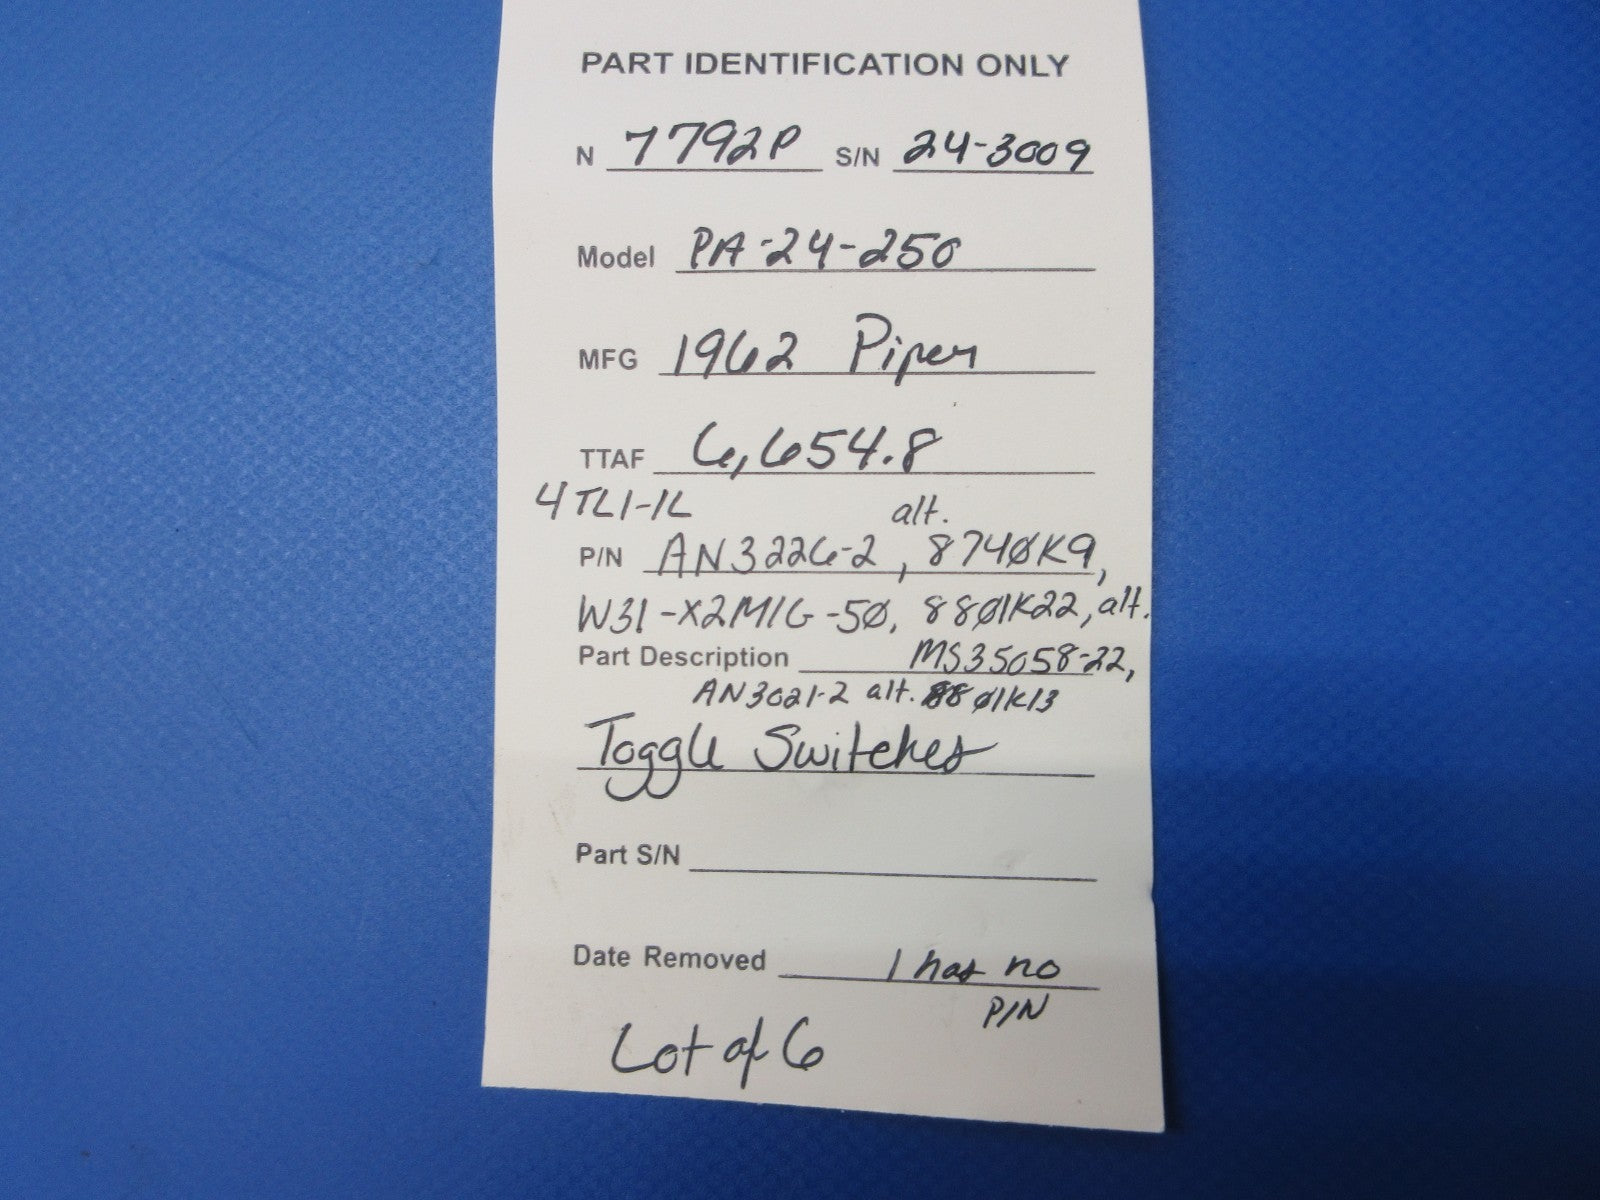 PART IDENTIFICATION ONLY
N 7792P S/N 24-3009
Model PA-24-250
MFG 1962 Piper
TTAF 6,654.8
4TL1-1L alt.
P/N AN3226-2, 874ØK9,
W31-X2M1G-5Ø, 88Ø1K22, alt.
Part Description MS35058-22,
AN3021-2 alt. 88Ø1K13
Toggle Switches
Part S/N
Date Removed 1 has no
P/N
Lot of 6